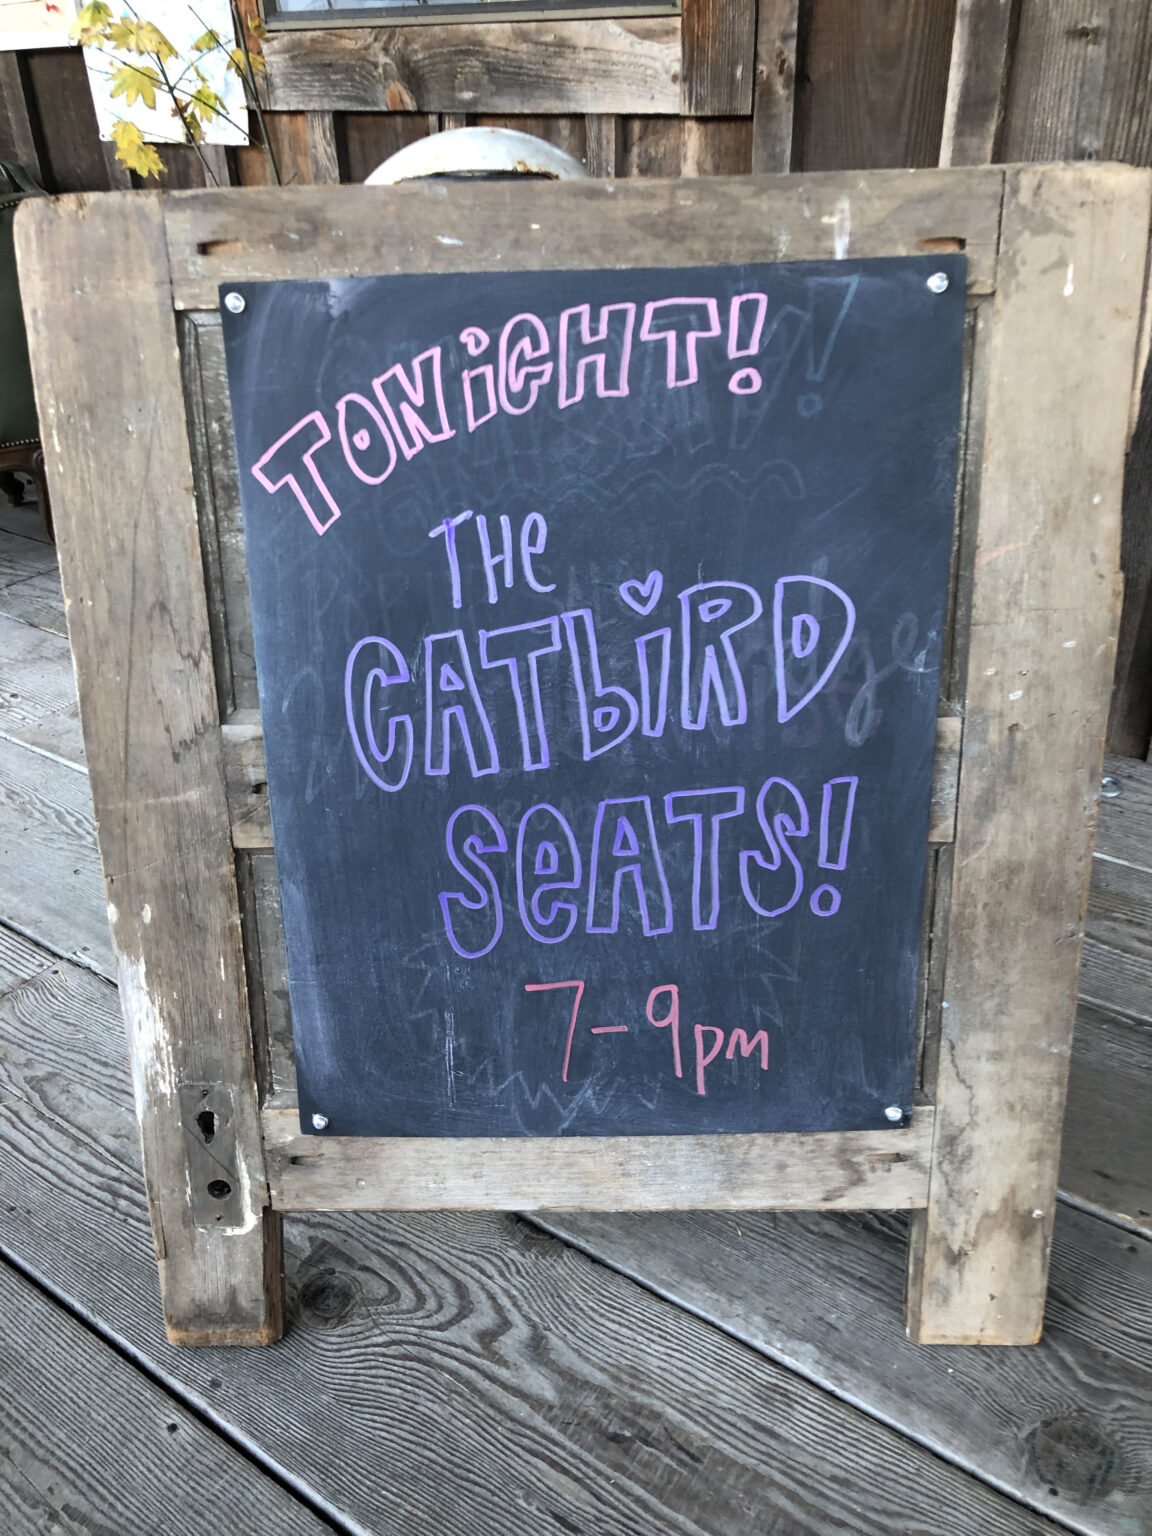 TONiGHT!
THe
CATbiRD
SeATS!
7-9pm